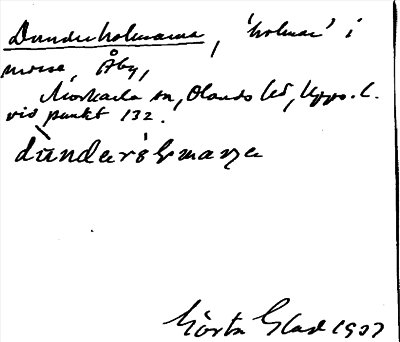 Dunderholmarna, 'holmar' i
mosse, Åby,
Morkarla sn, Olands hd, Upps. l.
vid punkt 132.
Märta Glad 1937